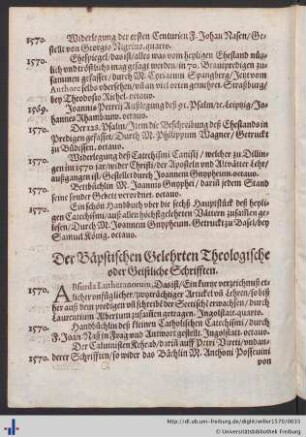 1570. Widerlegung der ersten Centurien F. Johan Nasen/Ge-
stellt von Georgio Nigrino. quarto.
1570. Ehespiegel/das ist/alles was vom heyligen Ehestand nütz-
lich vnd tröstlichs mag gesagt werden/in 70. Brautpredigen zu-
sammen gefasset/durch M. Cyriacum Spangberg/Jetzt vom
Authore selbs vbersehen/vñ an viel orten gemehret. Straßburg/
bey Theodosio Richel. octauo.
1569. Joannis Pretrij Außlegung deß 91. Psalm/te. Leipzig/Jo-
hannes Rhambaw. octauo.
1570. Der 128. Psalm/Item die Beschreibung deß Ehestands in
Predigen gefasset/Durch M. Philippum Wagner/Getruckt
zu Büdissen. octauo.
1570. Widerlegung deß Catechismi Canisij/welcher zu Dillin-
gen im 1570. jar/wider Christi/der Aposteln vnd Altvätter Lehr/
außgangen ist: Gestellet durch Joannem Gnypheum. octauo.
1570. Bettbüchlin M. Joannis Gnyphei/darin jedem Stand
seine sonder Gebett verordnet. octauo.
1570. Ein schön Handbuch vber die sechß Hauptstück deß heyli-
gen Catechismi/auß allen höchst gelehrten Vättern zusamen ge-
lesen/Durch M. Joannem Gnypheum. Getruckt zu Basel/bey
Samuel König. octauo.
Der Bäpstischen Gelehrten Theologische
oder Geistliche Schrifften.
1570. Absurda Lutheranorum, Das ist/Ein kurtze verzeichnuß et-
licher vnfüglicher/
her auß dem predigen vñ schreibē der Sectischē erwachsen/durch
Laurentium Albertum zusamen getragen. Ingolstatt. quarto.
1570. Handbüchlin deß kleinen Catholischen Catechismi/durch
F. Joan Naß in Frag vnd Antwort gestellt. Ingolstatt. octauo.
1570. Der Caluinisten Kehrab/dariñ auff Petri Vireti/vnd an-
derer Schrifften/so wider das Büchlin M. Anthoni Posseuini
von
http://dl.ub.uni-freiburg.de/diglit/willer1570/0035
© Universitätsbibliothek Freiburg